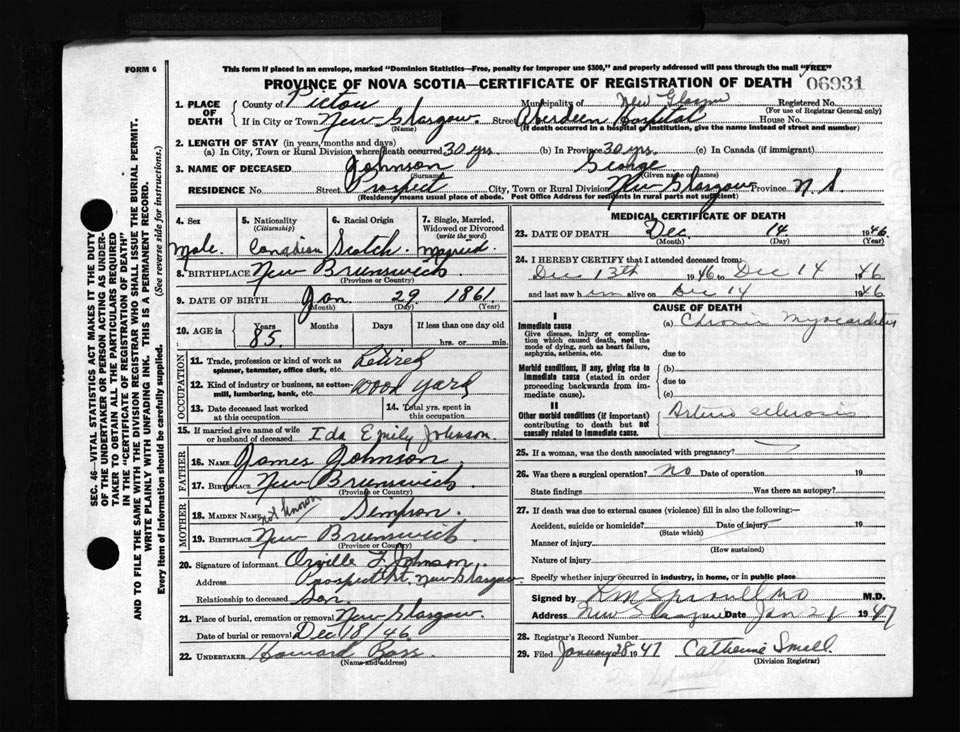 FORM 6
This form if placed in an envelope, marked "Dominion Statistics—Free, penalty for improper use $300," and properly addressed will pass through the mail "FREE"
PROVINCE OF NOVA SCOTIA—CERTIFICATE OF REGISTRATION OF DEATH 06931
SEC. 46—VITAL STATISTICS ACT MAKES IT THE DUTY
OF THE UNDERTAKER OR PERSON ACTING AS UNDERTAKER TO OBTAIN ALL THE PARTICULARS REQUIRED
IN THE "CERTIFICATE OF REGISTRATION OF DEATH"
AND TO FILE THE SAME WITH THE DIVISION REGISTRAR WHO SHALL ISSUE THE BURIAL PERMIT.
WRITE PLAINLY WITH UNFADING INK. THIS IS A PERMANENT RECORD.
Every item of information should be carefully supplied. (See reverse side for instructions.)
1. PLACE OF DEATH County of Pictou Municipality of New Glasgow Registered No.
(For use of Registrar General only)
If in City or Town New Glasgow. Street Aberdeen Hospital House No.
(Name) (If death occurred in a hospital or institution, give the name instead of street and number)
2. LENGTH OF STAY (in years/months and days)
(a) In City, Town or Rural Division where death occurred 30 yrs. (b) In Province 30 yrs. (c) In Canada (if immigrant)
3. NAME OF DECEASED Johnson George
(Surname) (Given name or names)
RESIDENCE No. Street Prospect City, Town or Rural Division New Glasgow Province N.S.
(Residence means usual place of abode. Post Office Address for residents in rural parts not sufficient)
4. Sex
Male.
5. Nationality
(Citizenship)
Canadian
6. Racial Origin
Scotch.
7. Single, Married, Widowed or Divorced
(write the word)
Married.
8. BIRTHPLACE New Brunswick.
(Province or Country)
9. DATE OF BIRTH Jan. 29 1861.
(Month) (Day) (Year)
10. AGE in Years Months Days If less than one day old
85. hrs. or min.
OCCUPATION
11. Trade, profession or kind of work as
spinner, teamster, office clerk, etc. Retired
12. Kind of industry or business, as cotten-
mill, lumbering, bank, etc. wood yard
13. Date deceased last worked
at this occupation
14. Total yrs. spent in
this occupation
15. If married give name of wife
or husband of deceased Ida Emily Johnson.
FATHER
16. NAME James Johnson.
17. Birthplace New Brunswick.
(Province or Country)
MOTHER
18. MAIDEN NAME not known Simpson.
19. BIRTHPLACE New Brunswick
(Province or Country)
20. Signature of informant Orville F. Johnson.
Address Prospect St. New Glasgow.
Relationship to deceased Son.
21. Place of burial, cremation or removal New Glasgow.
Date of burial or removal Dec 18/46.
22. UNDERTAKER Howard Ross.
(Name and address)
MEDICAL CERTIFICATE OF DEATH
23. DATE OF DEATH Dec. 14 1946
(Month) (Day) (Year)
24. I HEREBY CERTIFY that I attended deceased from:
Dec 13th 1946 to Dec 14 1946
and last saw him alive on Dec 14 1946
CAUSE OF DEATH
I
Immediate cause
Give disease, injury or complication which caused death, not the mode of dying, such as heart failure, asphyxia, asthenia, etc.
(a) Chronic Myocarditis
due to
Morbid conditions, if any, giving rise to immediate cause (stated in order proceeding backwards from immediate cause).
(b)
due to
(c)
II
Other morbid conditions (if important) contributing to death but not causally related to immediate cause.
Arterio sclerosis
25. If a woman, was the death associated with pregnancy?
26. Was there a surgical operation? No Date of operation 19
State findings Was there an autopsy?
27. If death was due to external causes (violence) fill in also the following:—
Accident, suicide or homicide? Date of injury 19
(State which)
Manner of injury
(How sustained)
Nature of injury
Specify whether injury occurred in industry, in home, or in public place
Signed by M.D.
Address New Glasgow Date Jan 21 1947
28. Registrar's Record Number
29. Filed January 28 1947 Catherine Small.
(Division Registrar)